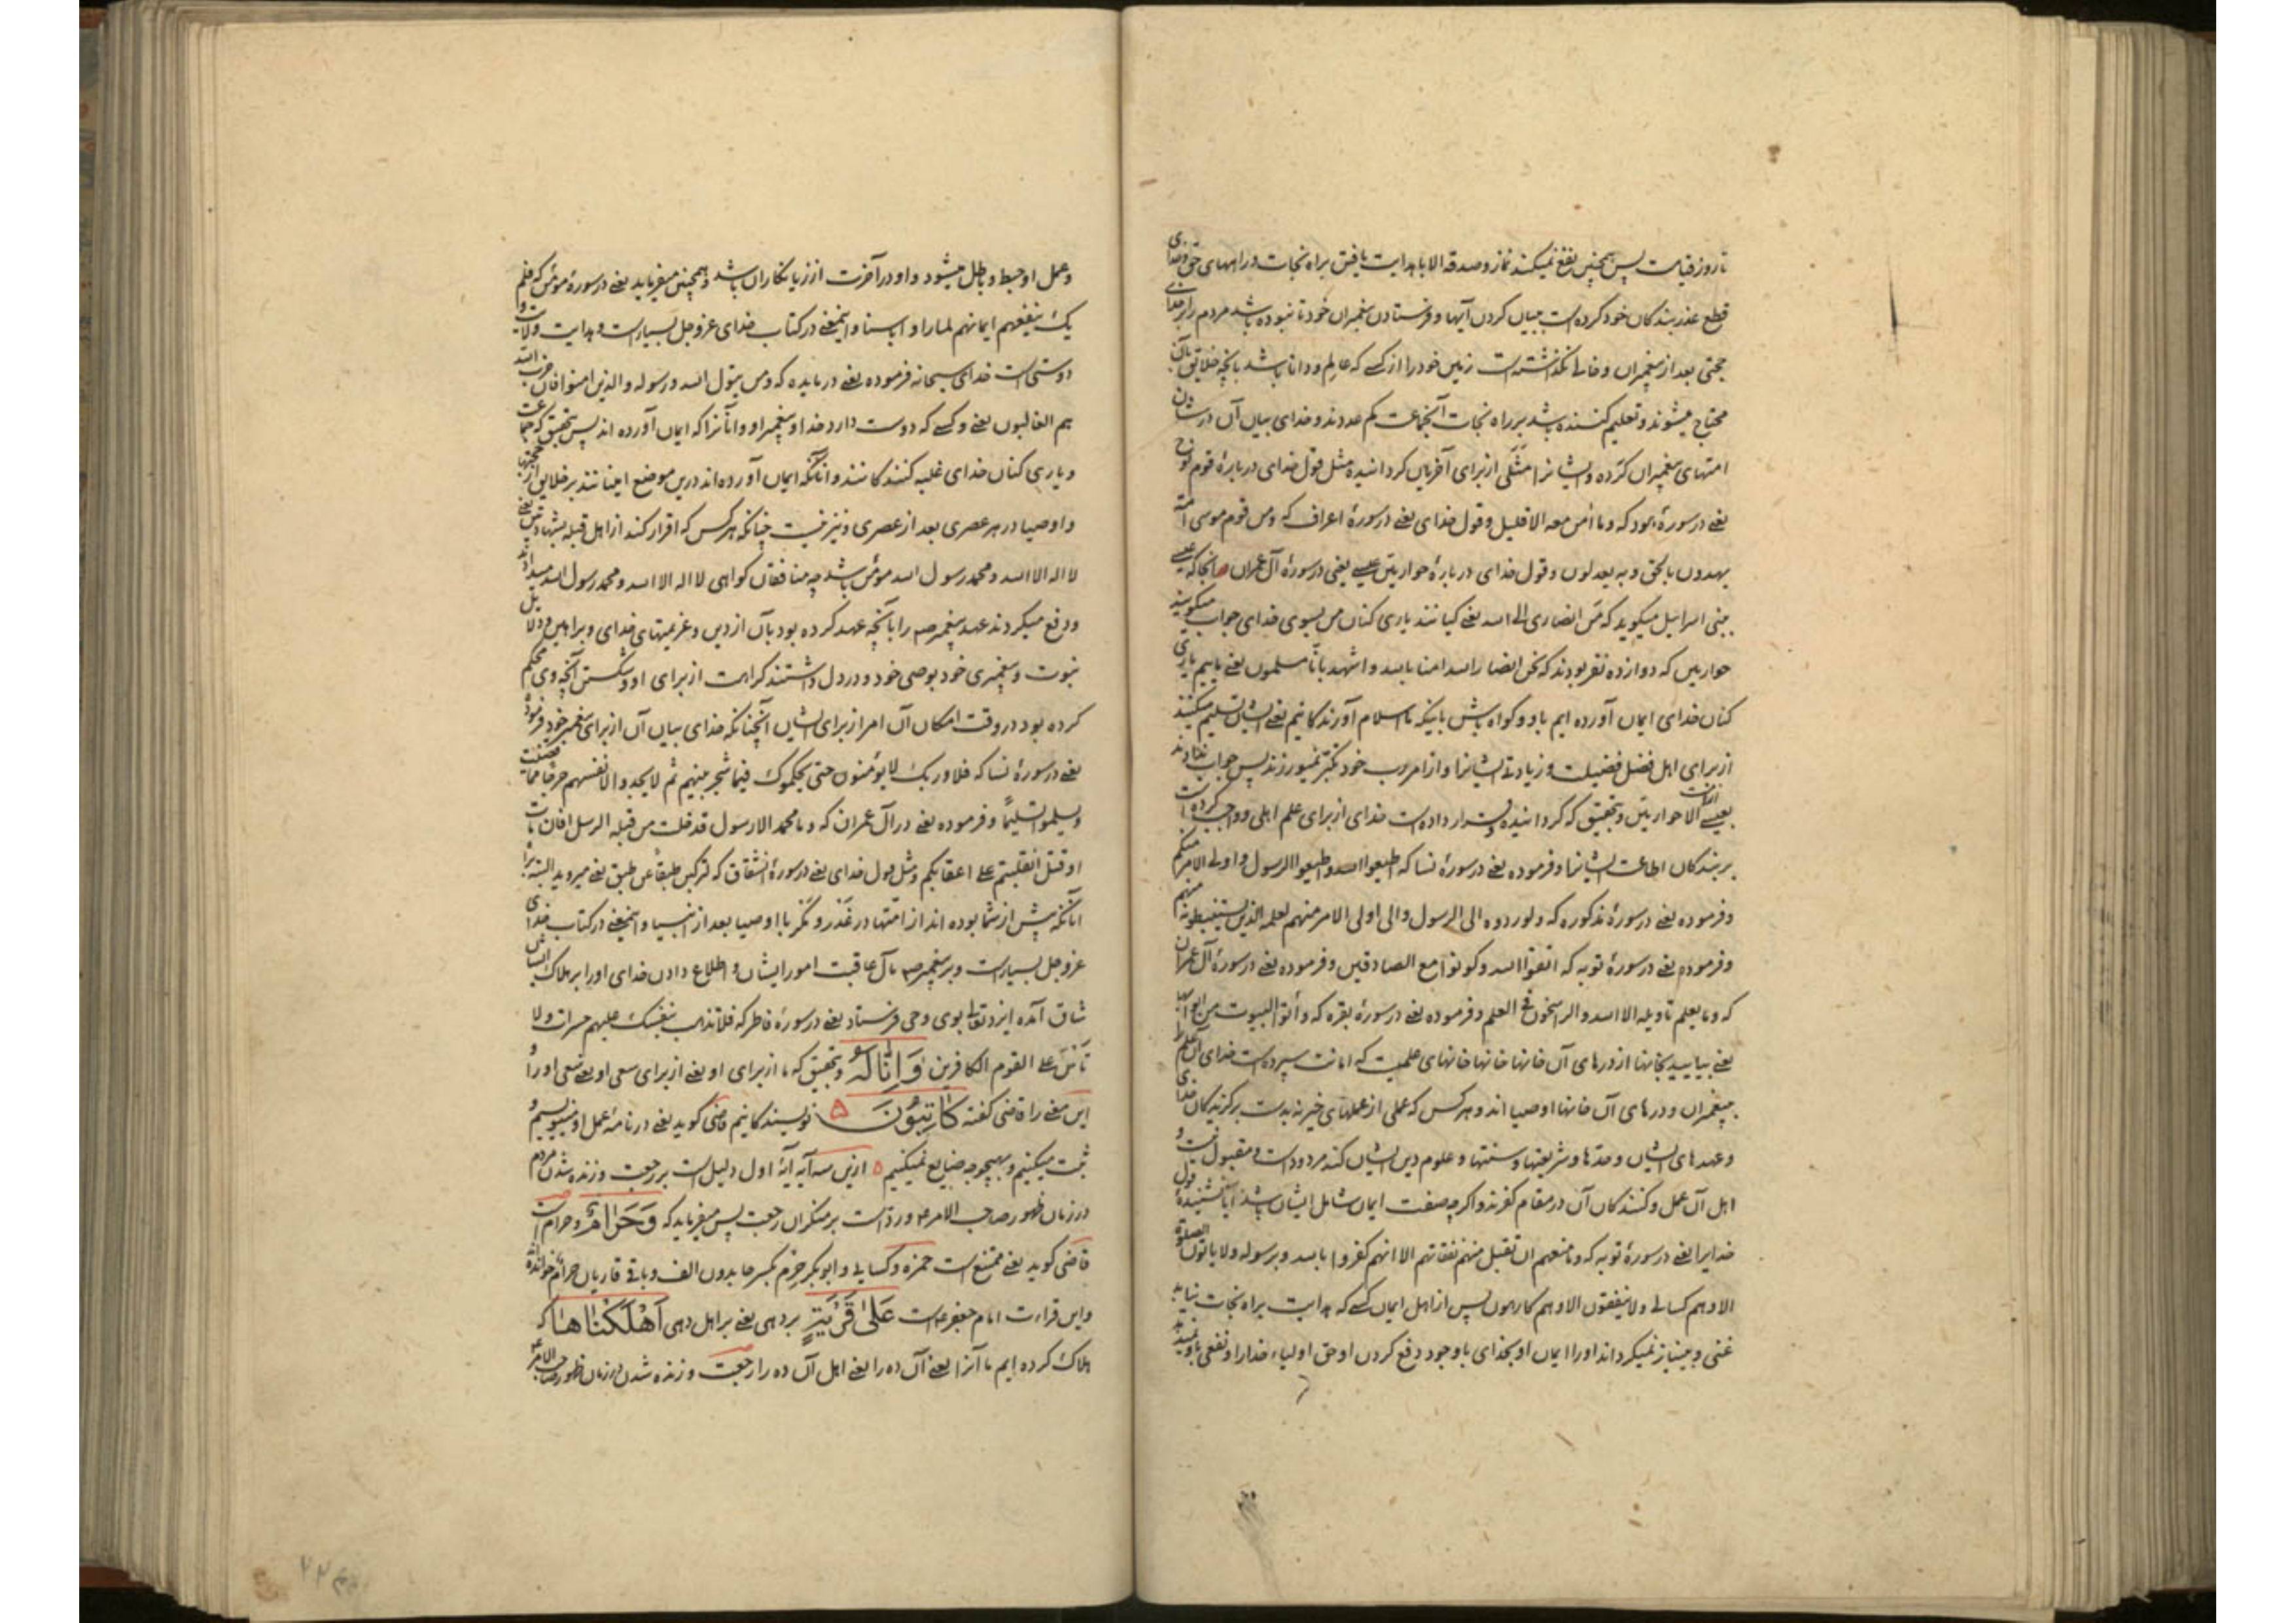 تا روز قیامت پس همچنین نفع نمیکند نماز و صدقه الا با هدایت یافتن براه نجات و راههای حق و خدای
قطع عذر بندکان خود کرده است ببیان کردن آیتها و فرستادن پیغمبران خود تا نبوده باشد مردم را بر خدای
حجتی بعد از پیغمبران و خالی نکذاشته است زمین خود را از کسے که عالم و دانا باشد بانچه خلایق بآن
محتاج میشوند و تعلیم کننده باشد بر راه نجات آنجماعت کم عددند و خدای بیان آن در شان
امتهای پیغمبران کرده و ایشانرا مثلی از برای آخریان کردانیده مثل قول خدای در بارهٔ قوم نوح
یعنے در سورهٔ هود که و ما آمن معه الا قلیل و قول خدای یعنے در سورهٔ اعراف که و من قوم موسی امة
یهدون بالحق و به یعدلون و قول خدای در بارهٔ حواریین عیسے یعنی در سورهٔ آل عمران انجا که عیسے
ببنی اسرائیل میکوید که من انصاری الی الله یعنے کیانند یاری کنان من بسوی خدای جواب میکویند
حواریین که دوازده نفر بودند که نحن انصار الله امنا بالله و اشهد بانا مسلمون یعنے ماییم یاری
کنان خدای ایمان آورده ایم باو و کواه باش باینکه ما اسلام آورندکانیم یعنے ایشان تسلیم میکنند
از برای اهل فضل فضیلت و زیادتے ایشانرا و از امر رب خود تکبر نمیورزند پس جواب ندادند
بعیسے الا حواریین و بتحقیق که کردانیده و قرار داده است خدای از برای علم اهلی و واجب کرده است
بر بندکان اطاعت ایشانرا و فرموده یعنے در سورهٔ نسا که اطیعوا الله و اطیعوا الرسول و اولی الامر منکم
و فرموده یعنے در سورهٔ مذکوره که و لو ردوه الی الرسول و الی اولی الامر منهم لعلمه الذین یستنبطونه منهم
و فرموده یعنے در سورهٔ توبه که اتقوا الله و کونوا مع الصادقین و فرموده یعنے در سورهٔ آل عمران
که و ما یعلم تاویله الا الله و الراسخون فی العلم و فرموده یعنے در سورهٔ بقره که و أتوا البیوت من ابوابها
یعنے بیایید بخانها از درهای آن خانها خانها خانهای علمیست که امانت سپرده است خدای آن علم را
به پیغمبران و درهای آن خانها اوصیا اند و هر کس که عملی از عملهای خیر نه بدست برکزیدکان خدای
و عهدهای ایشان و حدها و شریعتها و سنتها و علوم دین ایشان کند مردود است و مقبول نیست و
اهل آن عمل و کنندکان آن در مقام کفرند و اکرچه صفت ایمان شامل ایشان باشد آیا نشنیدهٔ قول
خدایرا یعنے در سورهٔ توبه که و ما منعهم ان تقبل منهم نفقاتهم الا انهم کفروا بالله و برسوله و لا یاتون الصلوة
الا و هم کسالی و لا ینفقون الا و هم کارهون پس از اهل ایمان کسے که هدایت براه نجات نیابد
غنی و بینیاز نمیکرداند او را ایمان او بخدای با وجود دفع کردن او حق اولیاء خدا را و نفعی باو نمیدهد
و عمل او حبط و باطل میشود و او در آخرت از زیانکاران باشد و همچنین میفرماید یعنے در سورهٔ مؤمن که فلم
یک ینفعهم ایمانهم لما راوا باسنا و اینمعنی در کتاب خدای عز و جل بسیار است و هدایت ولایت و
دوستی است خدای سبحانه فرموده یعنے در مایده که و من یتول الله و رسوله و الذین امنوا فان حزب الله
هم الغالبون یعنے و کسے که دوست دارد خدا و پیغمبر او و آنانرا که ایمان آورده اند پس بتحقیق که جماعت
و یاری کنان خدای غلبه کنندکانند و آنانکه ایمان آورده اند درین موضع امینانند بر خلایق از حجتها
و اوصیا در هر عصری بعد از عصری و نیز نیست چنانکه هر کس که اقرار کند از اهل قبله بشهادتین یعنے
لا اله الا الله و محمد رسول الله مؤمن باشد چه منافقان کواهی لا اله الا الله و محمد رسول الله میدادند
و دفع میکردند عهد پیغمبر ص را بآنچه عهد کرده بود بآن از دین و عزیمتهای خدای و براهین و دلایل
نبوت و پیغمبری خود بوصی خود و در دل داشتند کراهت از برای او و شکستن آنچه وی محکم
کرده بود در وقت امکان آن امر از برای ایشان آنچنانکه خدای بیان آن از برای پیغمبر خود فرموده
یعنے در سورهٔ نسا که فلا و ربک لا یؤمنون حتی یحکموک فیما شجر بینهم ثم لا یجدوا فی انفسهم حرجا مما قضیت
و یسلموا تسلیمًا و فرموده یعنے در آل عمران که و ما محمد الا رسول قد خلت من قبله الرسل افان مات
او قتل انقلبتم علی اعقابکم و مثل قول خدای یعنے در سورهٔ انشقاق که لترکبن طبقًا عن طبق یعنے میروید البته براه
آنانکه پیش از شما بوده اند از امتها در غَدَر و مَکر با اوصیا بعد از انبیا و اینمعنے در کتاب خدای
عز و جل بسیار است و بر پیغمبر ص مآل عاقبت امور ایشان و اطلاع دادن خدای او را بر هلاک ایشان
شاق آمده ایزد تعالی بوی وحی فرستاد یعنے در سورهٔ فاطر که فلا تذهب نفسک علیهم حسرات و لا
تاس علی القوم الکافرین وَ اِنّا لَهُ و بتحقیق که ما از برای او یعنے از برای سعی او یعنے سعی او را و
این معنے را قاضی کفته کاتِبُونَ ۵ نویسندکانیم قاضی کوید یعنے در نامهٔ عمل او مینویسیم و
ثبت میکنیم و بهیچوجه ضایع نمیکنیم ۵ ازین سه آیه آیهٔ اول دلیل است بر رجعت و زنده شدن مردم
در زمان ظهور صاحب الامر ع و ردّ است بر منکران رجعت پس میفرماید که وَ حَرامٌ و حرام است
قاضی کوید یعنے ممتنع است حمزه و کسایی و ابو بکر حِرم بکسر حا بدون الف و باقی قاریان حرام خوانده اند
و این قراءت امام جعفر ع است عَلی قَریَةٍ بر دهی یعنے بر اهل دهی اَهلَکناها که
هلاک کرده ایم ما آنرا یعنے آن ده را یعنے اهل آن ده را رجعت و زنده شدن در زمان ظهور صاحب الامر ع